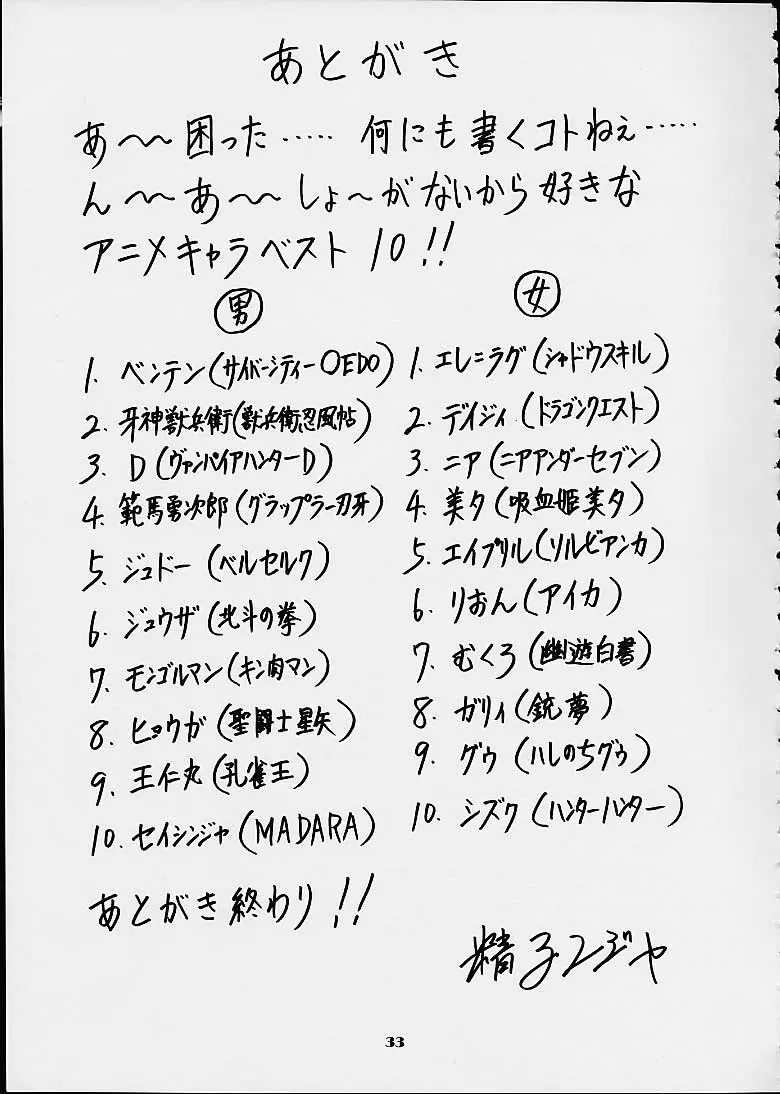 あとがき
あ〜〜困った…… 何にも書くコトねぇ……
ん〜〜あ〜〜しょ〜がないから好きな
アニメキャラベスト10!!
男
1. ベンテン(サイバーシティーOEDO)
2. 牙神獣兵衛(獣兵衛忍風帖)
3. D(ヴァンパイアハンターD)
4. 範馬勇次郎(グラップラー刃牙)
5. ジュドー(ベルセルク)
6. ジュウザ(北斗の拳)
7. モンゴルマン(キン肉マン)
8. ヒョウガ(聖闘士星矢)
9. 王仁丸(孔雀王)
10. セイシンジャ(MADARA)
女
1. エレニラグ(シャドウスキル)
2. デイジィ(ドラゴンクエスト)
3. ニア(ニアアンダーセブン)
4. 美夕(吸血姫美夕)
5. エイプリル(ソルビアンカ)
6. りおん(アイカ)
7. むくろ(幽遊白書)
8. ガリィ(銃夢)
9. グゥ(ハレのちグゥ)
10. シズク(ハンターハンター)
あとがき終わり!!
精子ンジャ
33